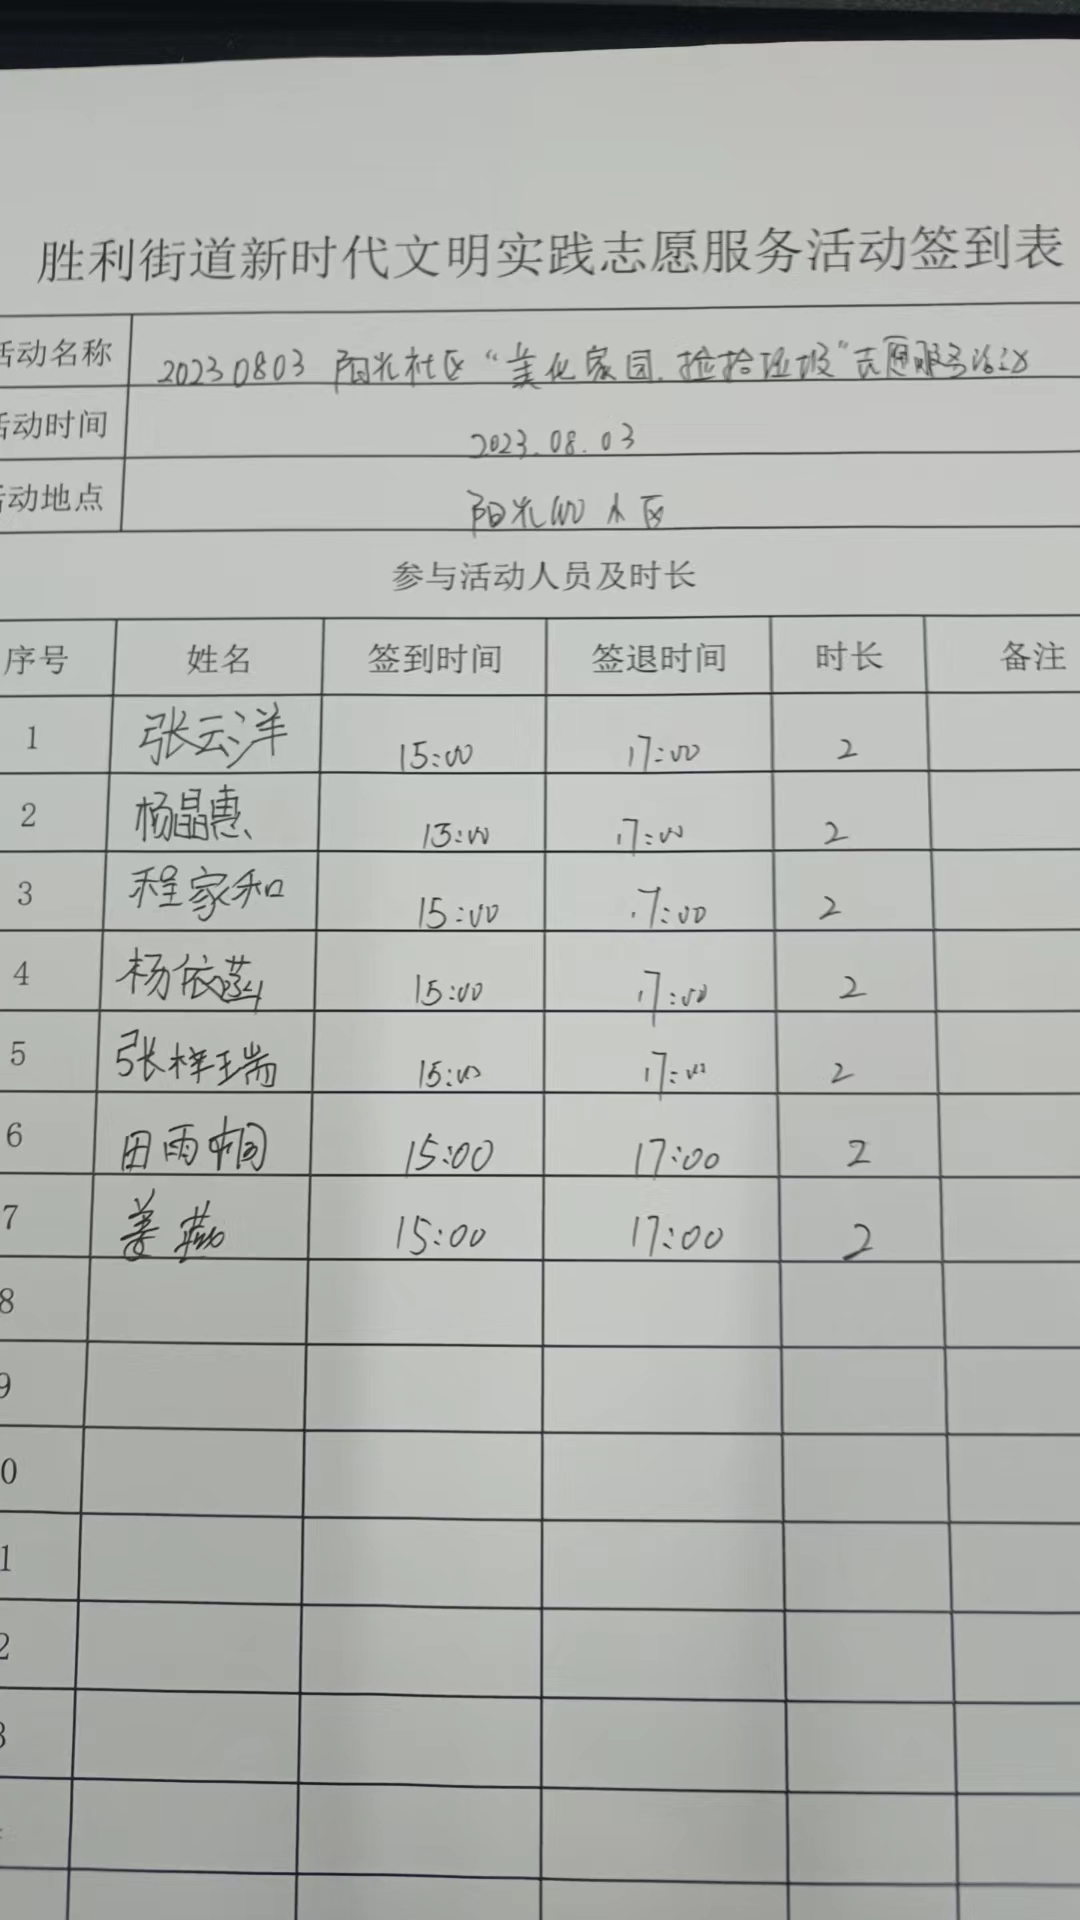 胜利街道新时代文明实践志愿服务活动签到表
活动名称 20230803 阳光社区“美化家园,捡拾垃圾”志愿服务活动
活动时间 2023.08.03
活动地点 阳光 小区
参与活动人员及时长
序号 姓名 签到时间 签退时间 时长 备注
1 张云洋 15:00 17:00 2
2 杨晶惠 15:00 17:00 2
3 程家和 15:00 17:00 2
4 杨依菡 15:00 17:00 2
5 张梓瑞 15:00 17:00 2
6 田雨桐 15:00 17:00 2
7 姜燕 15:00 17:00 2
8
9
0
1
2
3